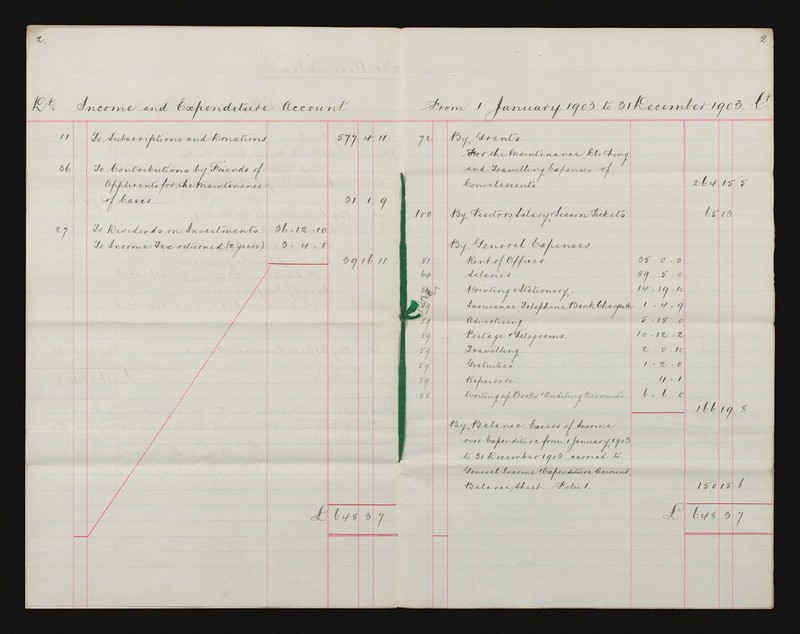 2.
Dr. Income and Expenditure Account
11 To Subscriptions and Donations 577 4 11
36 To Contributions by Friends of
Applicants for the Maintenance
of Cases 31 1 9
27 To Dividends on Investments 36.12.10
To Income Tax returned (2 years) 3.4.1
39 16 11
£ 648 3 7
2
From 1 January 1903 to 31 December 1903. Cr
72 By Grants
For the Maintenance Clothing
and Travelling Expenses of
Convalescents 264 15 5
100 By Visitors Salary & Season Tickets 65 13
By General Expenses
81 Rent of Offices 35.0.0
64 Salaries 89.5.0
Printing & Stationery 14.19.10
59 Insurance Telephone Bank Charges &c 1.4.9
59 Advertising 5.18.0
59 Postage & Telegrams 10.12.2
59 Travelling 2.0.10
59 Gratuities 1.2.0
59 Repairs &c 11.1
58 Writing up Books & Auditing Accounts 6.6.0
166 19 8
By Balance. Excess of Income
over Expenditure from 1 January 1903
to 31 December 1903 carried to
General Income & Expenditure Account
Balance Sheet. Folio 1. 150 15 6
£ 648 3 7